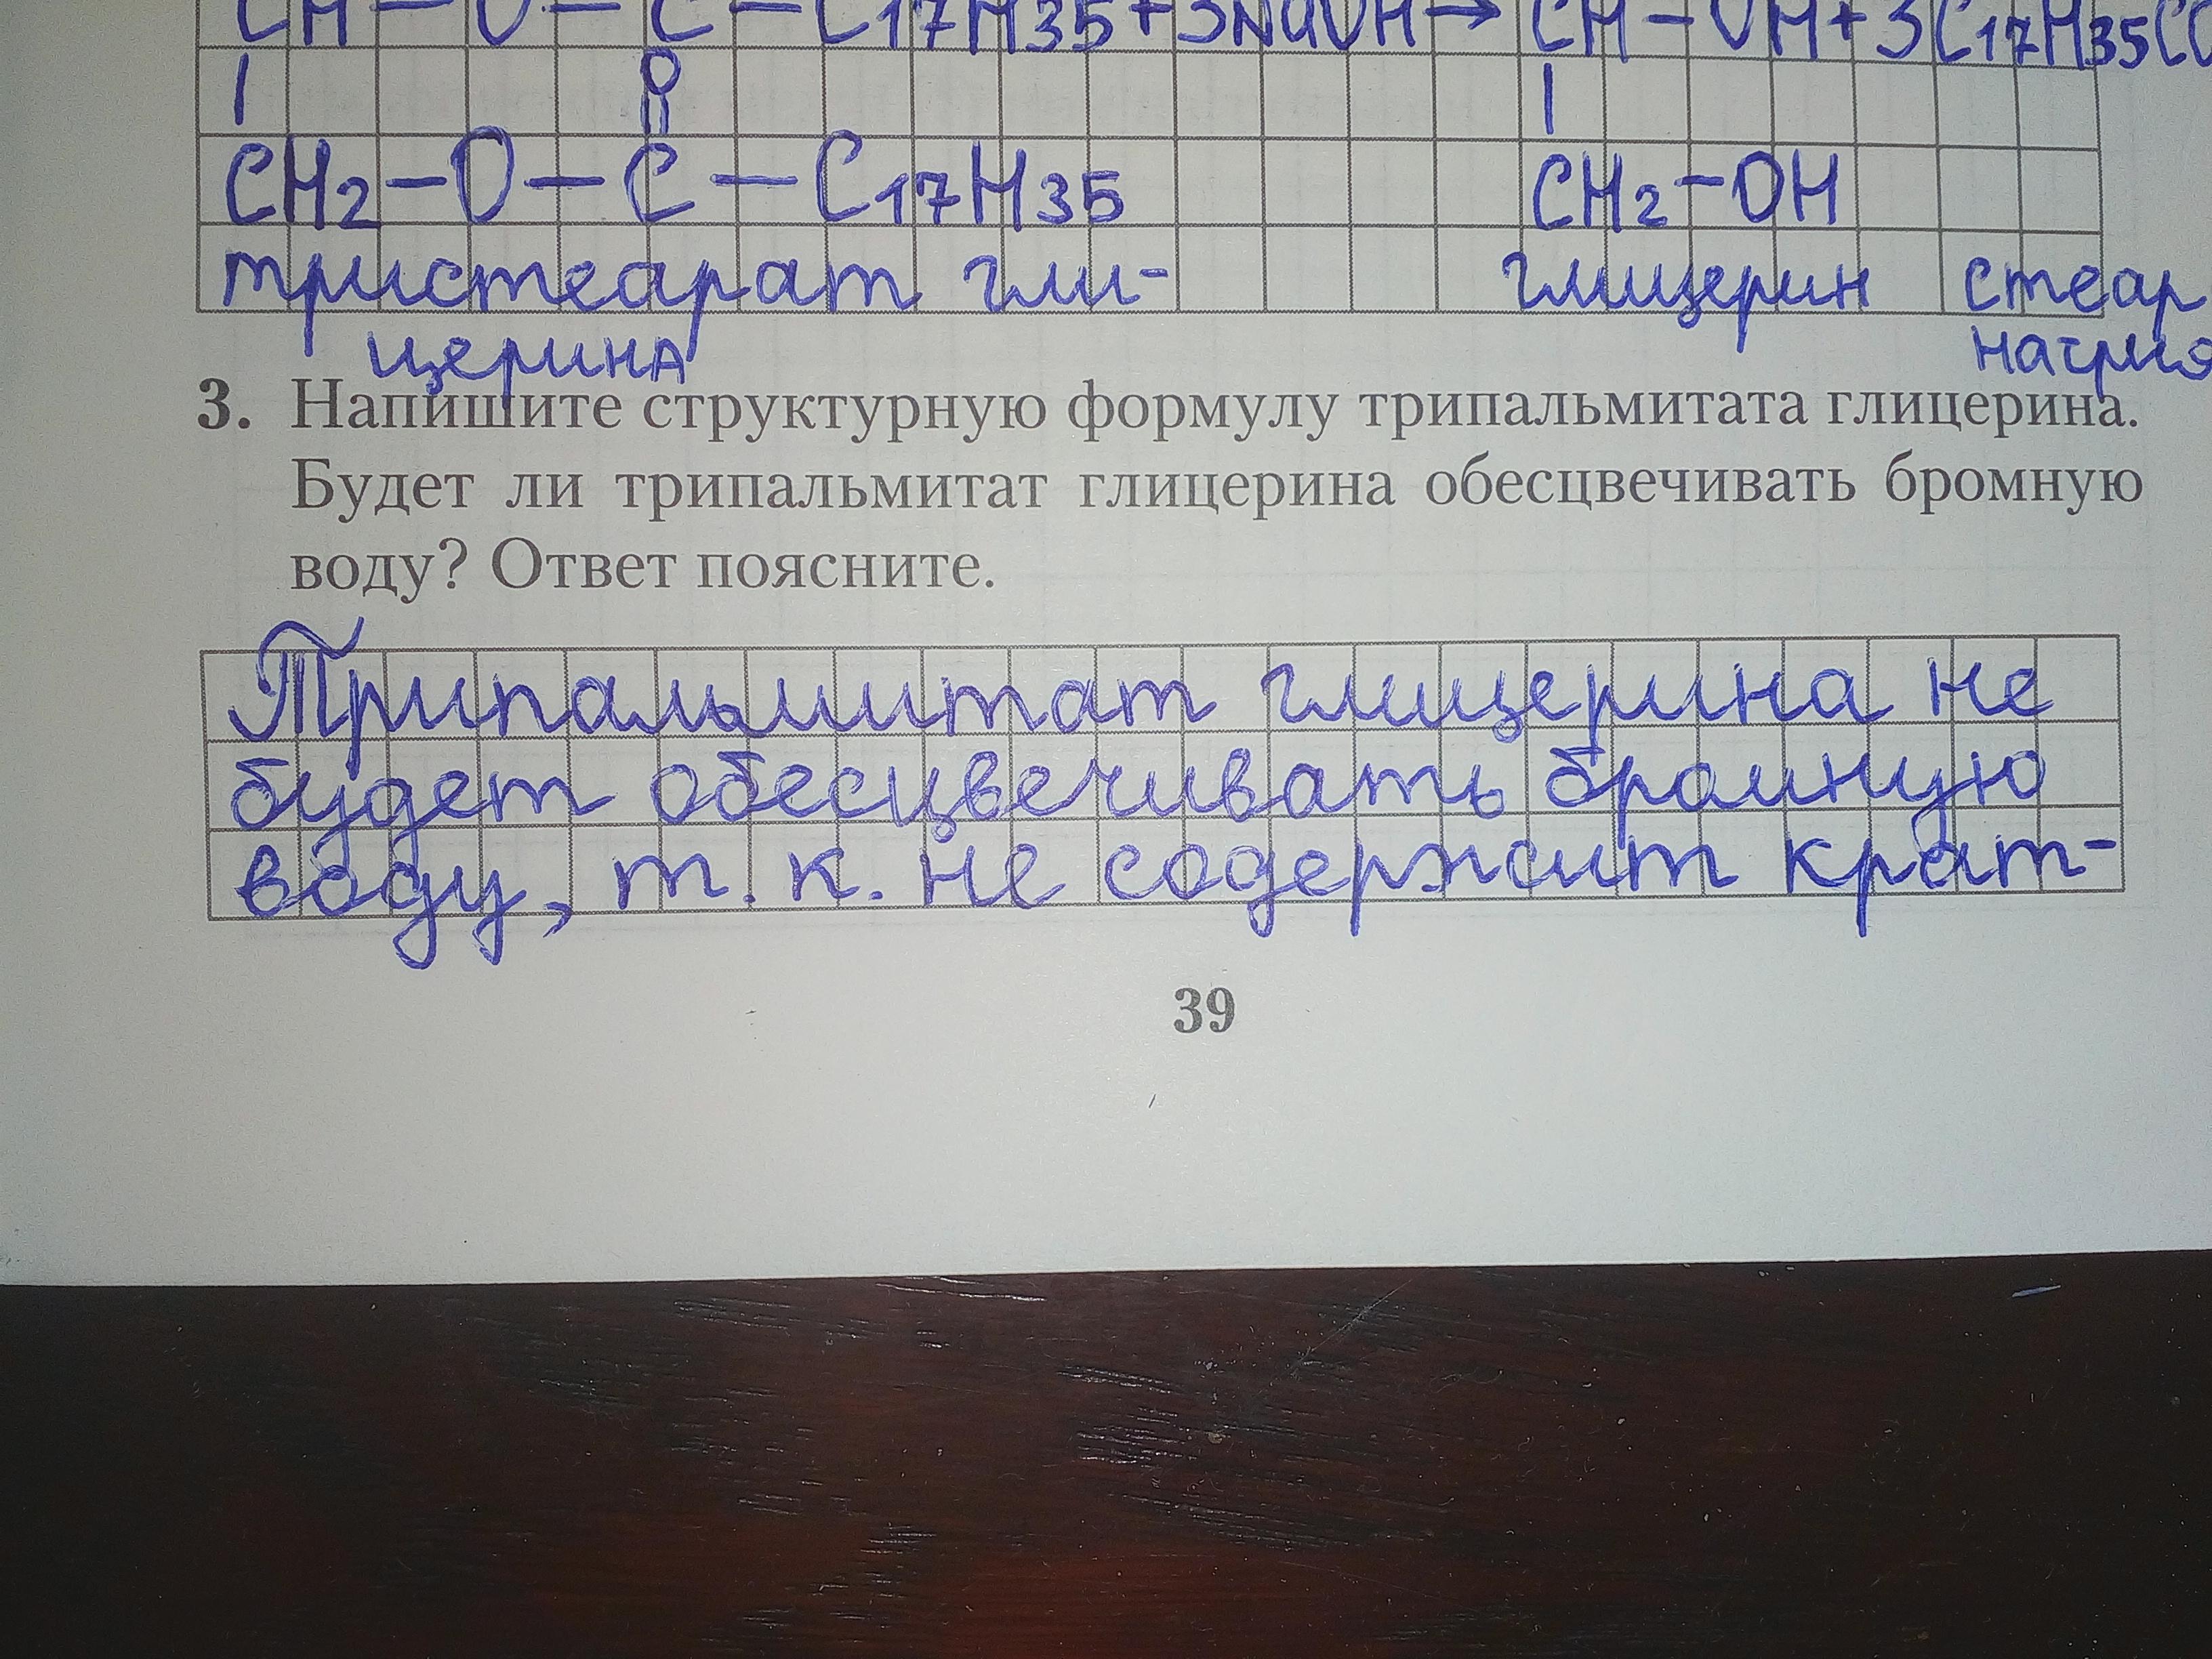 CH — O — C — C17H35 + 3NaOH → CH — OH + 3C17H35CO
| O |
||
CH2 — O — C — C17H35 CH2 — OH
тристеарат гли- глицерин стеар
церина натрия
3. Напишите структурную формулу трипальмитата глицерина.
Будет ли трипальмитат глицерина обесцвечивать бромную
воду? Ответ поясните.
Трипальмитат глицерина не
будет обесцвечивать бромную
воду, т. к. не содержит крат-
39